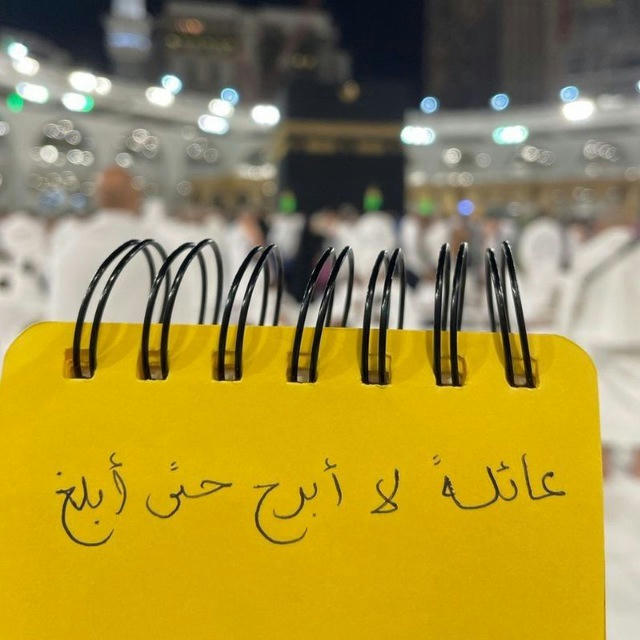 عائلة لا أبرح حتى أبلغ